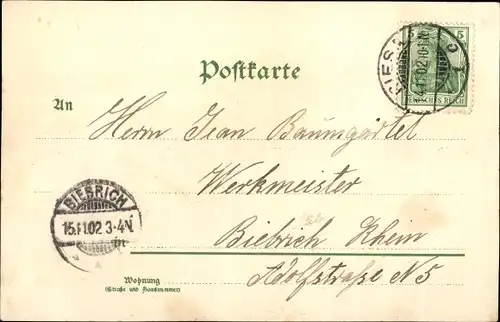 5
14.11.02.10-11
DEUTSCHES REICH
Postkarte
An
Herrn Jean Baumgärtel
Werkmeister
BIEBRICH
15.11.02 3-4N.
in
Biebrich Rhein
Wohnung
(Straße und Hausnummer)
Adolfstraße N 5